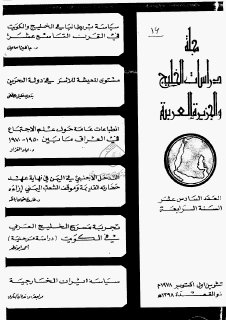 ١٦
مجلة
دراسات الخليج
والجزيرة العربية
العدد السادس عشر
السنة الرابعة
تشرين أول اكتوبر ١٩٧٨م
ذو القعدة ١٣٩٨هـ
سياسة بريطانيا في الخليج والكويت
في القرن التاسع عشر
مستوى المعيشة للأسر في دولة البحرين
انطباعات عامة حول علم الاجتماع
في العراق ما بين ١٩٥٠ - ١٩٨٠
التدخل الأجنبي في اليمن في نهاية عهد
حضارته القديمة وموقف الشعب اليمني إزاءه
تجربة مسرح الخليج العربي
في الكويت
سياسة ايران الخارجية